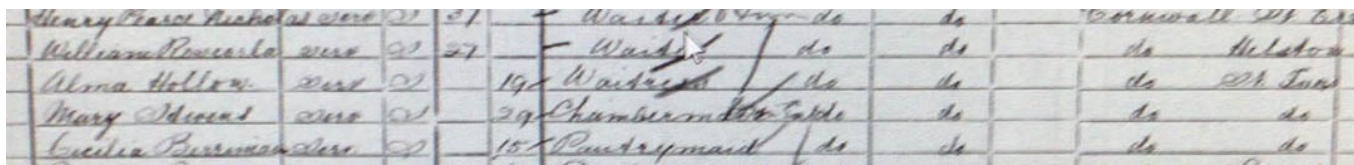 Henry Pearce Nicholas Serv S 31 - Waiter do do Cornwall St
William Serv S 27 - Waiter do do do Helston
Alma Hollow Serv S 19 - Waitress do do do St Ives
Mary Stevens Serv S 29 - Chambermaid do do do do
Cecilia Berriman Serv S 15 - Pantrymaid do do do do